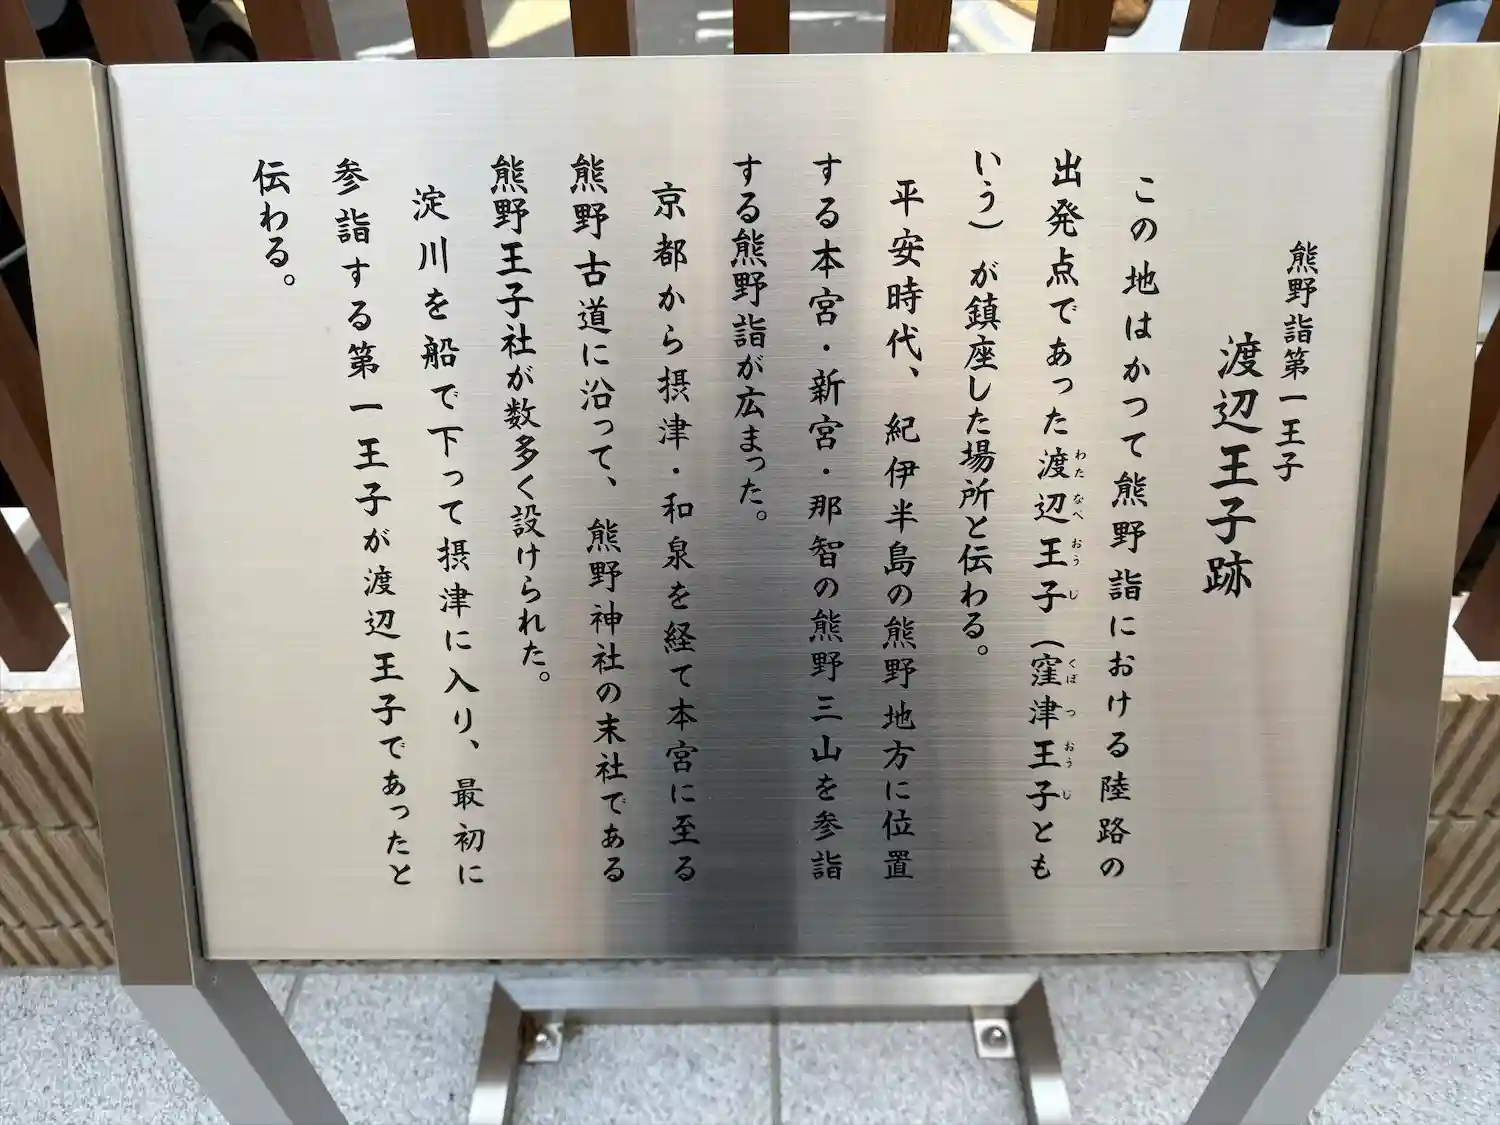 熊野詣第一王子
渡辺王子跡
この地はかつて熊野詣における陸路の
出発点であった渡辺王子（窪津王子とも
わたなべおうじ
くぼつおうじ
いう）が鎮座した場所と伝わる。
平安時代、紀伊半島の熊野地方に位置
する本宮・新宮・那智の熊野三山を参詣
する熊野詣が広まった。
京都から摂津・和泉を経て本宮に至る
熊野古道に沿って、熊野神社の末社である
熊野王子社が数多く設けられた。
淀川を船で下って摂津に入り、最初に
参詣する第一王子が渡辺王子であったと
伝わる。